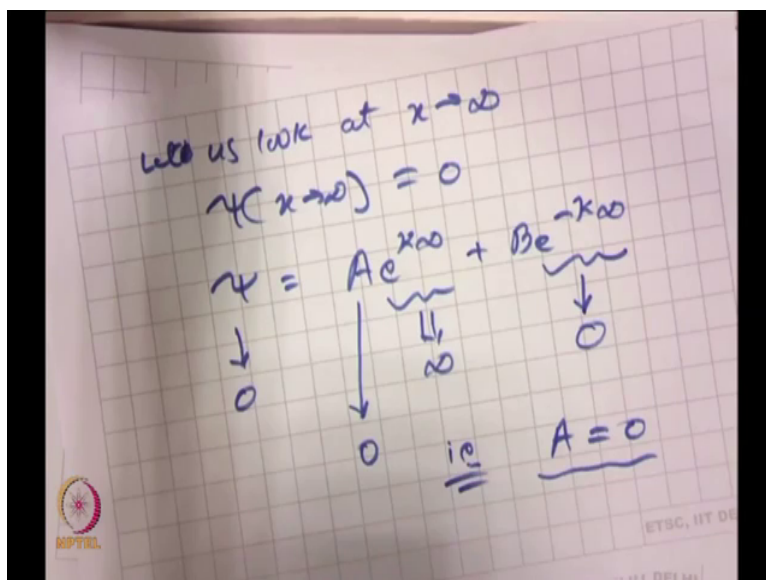 us look at x → ∞
ψ(x→∞) = 0
ψ = Ae^{κ∞} + Be^{-κ∞}
↓ ↓ ⇓ ↓
0 0 ∞ 0
ie A = 0
NPTEL
ETSC, IIT DE
DELHI